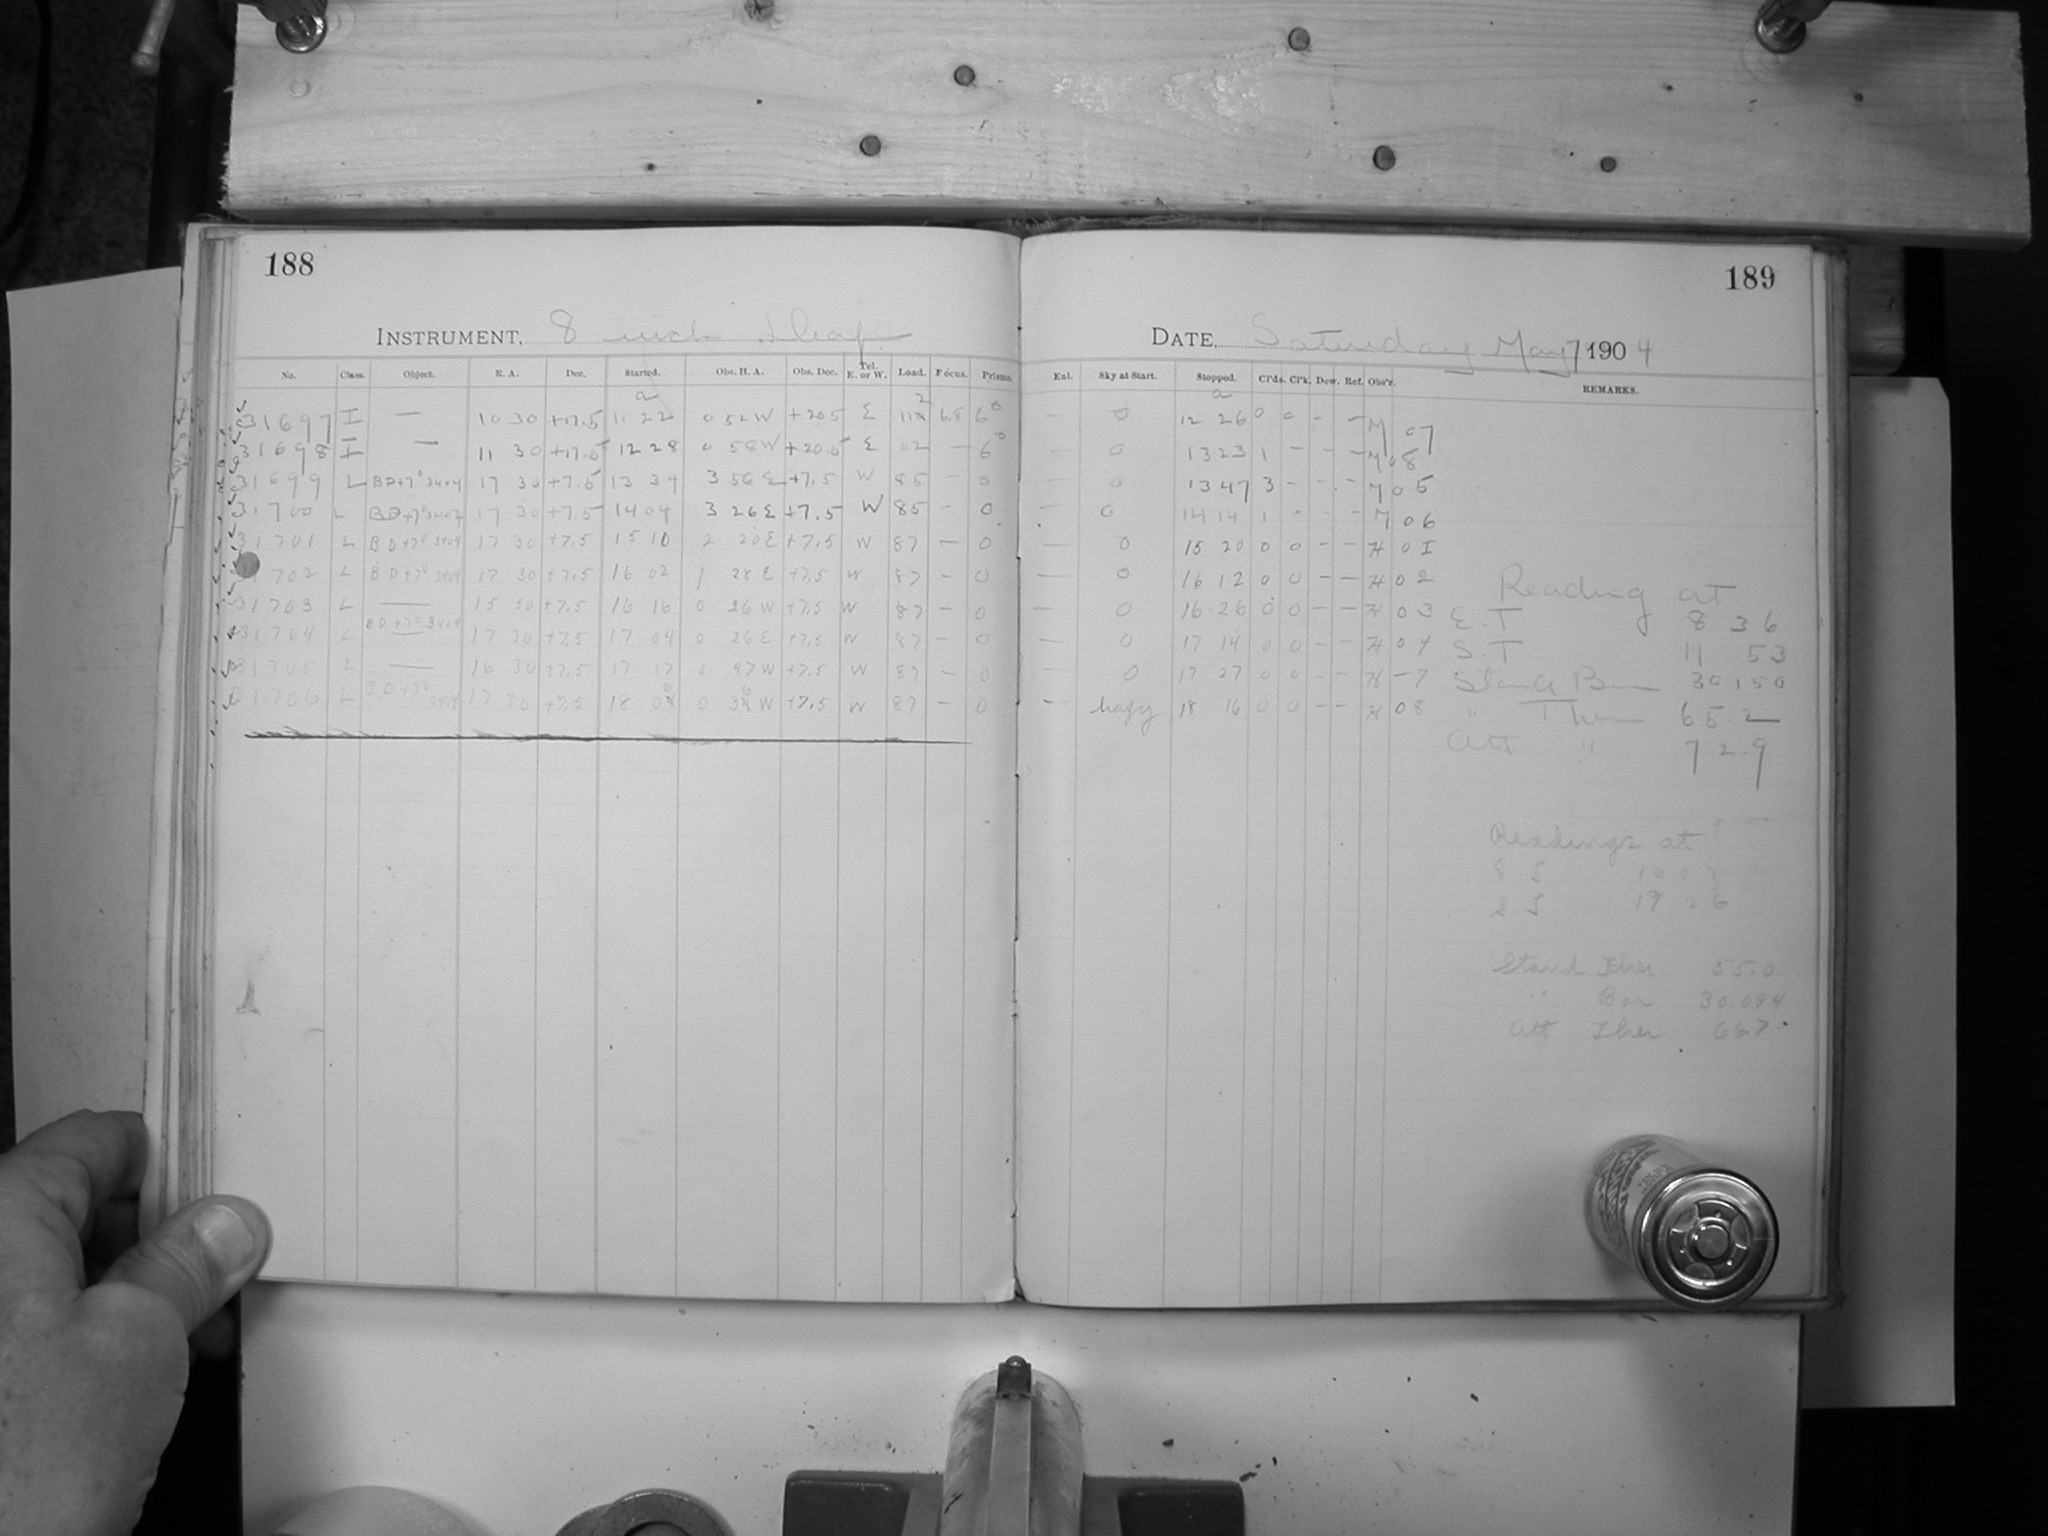 188
INSTRUMENT, 8 inch
No. Class. Object. R. A. Dec. Started. Obs. H. A. Obs. Dec. Tel. E. or W. Load. Focus. Prisms.
31697 I — 10 30 +17.5 11 22 0 52 W +20.5 E 112 6.8 6°
31698 I — 11 30 +17.5 12 28 0 58 W +20.5 E 112 — 6°
31699 L BD+7° 3404 17 30 +7.5 13 34 3 56 E +7.5 W 85 – 0
31700 L BD+7° 17 30 +7.5 14 04 3 26 E +7.5 W 85 – 0
31701 L BD+7° 3404 17 30 +7.5 15 10 2 20 E +7.5 W 87 – 0
1702 L BD+7° 3404 17 30 +7.5 16 02 1 28 E +7.5 W 87 – 0
31703 L — 15 50 +7.5 16 16 0 26 W +7.5 W 87 – 0
31704 L BD+7° 3404 17 30 +7.5 17 04 0 26 E +7.5 W 87 – 0
31705 L — 16 30 +7.5 17 17 0 47 W +7.5 W 87 – 0
31706 L BD+7° 3404 17 30 +7.5 18 06 0 36 W +7.5 W 87 – 0
189
DATE, Saturday May 7 1904
Enl. Sky at Start. Stopped. Cl'ds. Cl'k. Dew. Ref. Obs'r. REMARKS.
— 0 12 26 0 0 – – M 07
— 0 13 23 1 – – – M 08
— 0 13 47 3 – – – M 05
— 0 14 14 1 – – – M 06
— 0 15 20 0 0 – – H 01
— 0 16 12 0 0 – – H 02
— 0 16 26 0 0 – – H 03
— 0 17 14 0 0 – – H 04
— 0 17 27 0 0 – – H –7
— hazy 18 16 0 0 – – H 08
Reading at
E.T 8 36
S.T 11 53
Stand Bar 30.150
" Ther 65.2
Att " 72.9
Readings at
16 07
19 26
Stand Ther 55.0
" Bar 30.084
Att Ther 66.7